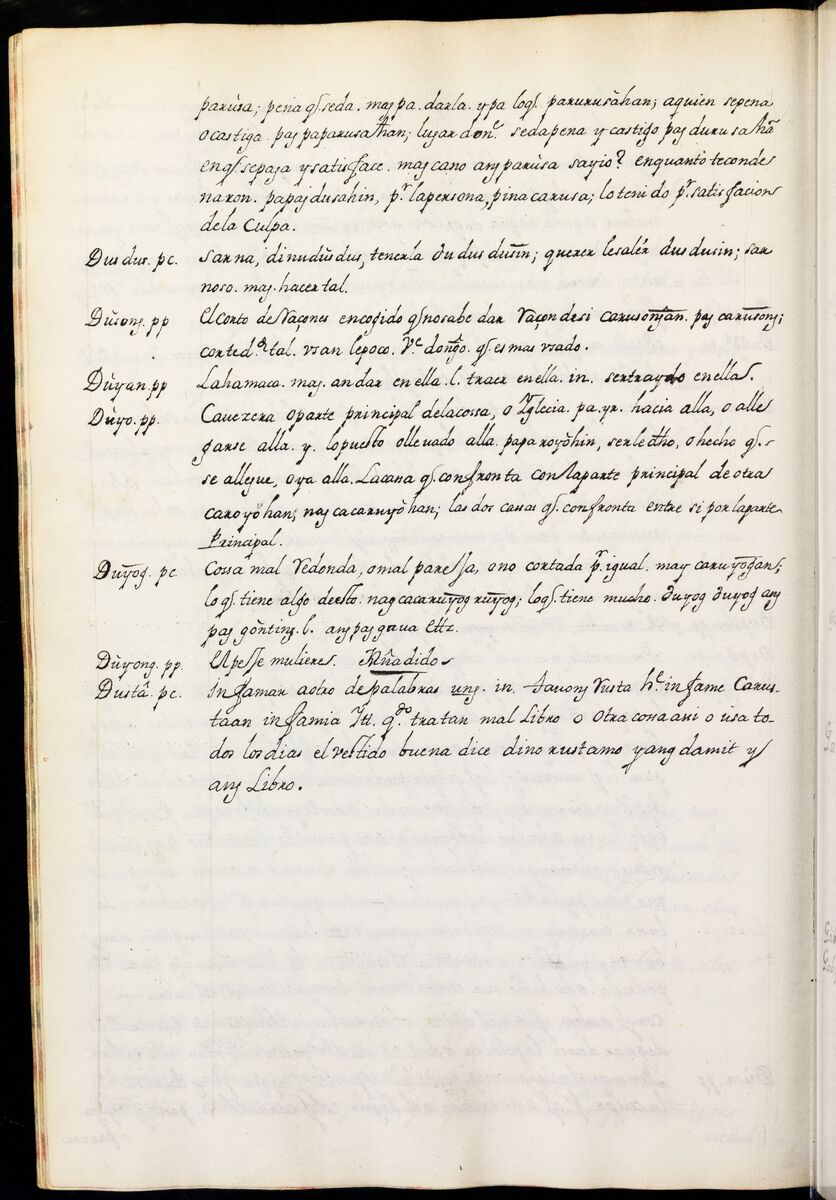 parùsa; pena q̃. seda. mag pa. darla. y pa lo q̃. parurusàhan; a quien se pena
o castiga. pag paparusahan; lugar donᵉ. se da pena y castigo pag durusahã
en q̃ se paga y satisface. magcano ang parùsa sayio? en quanto te conde
naron. papagdusahin, pʳ. la persona, pinacarusa; lo tenido pʳ. satisfacion
de la Culpa.
Dus dus. pc. sarna, dinudùsdus, tenerla dudusdusin; querer le salér dusdusin; sar
noso. mag. hacer tal.
Dùsong. pp El corto de Raçones encogido q̃. no sabe dar Raçon de si carusongan. pag carusong;
cortedᵈ. tal. vsan le poco. Vᵉ dongo. q̃. es mas vsado.
Dùyan. pp La hamaca. mag. andar en ella. l. traer en ella. in. ser traydo en ella.
Dùyo. pp. Cavezera o parte principal de la cossa, o Yglecia. pa. yr. hacia alla, o alle
garse alla. y. lo puesto o llevado alla. paparoyòhin, ser ledho, o hecho q̃.
se allegue, o ya alla. La cassa q̃. confronta con la parte principal de otra
caroyòhan; nag cacaruyòhan; las dos cassas q̃. confronta entre si por la parte
Principal.
Duyog. pc. Cossa mal redonda, o mal paressa, o no cortada pʳ. igual. may caruyogan;
lo q̃. tiene algo deesto. nag cacaruyog ruyog; lo q̃. tiene mucho. duyog duyog ang
pag gònting. l. ang pag gaua Ettc.
Dùyong. pp. El pesse mulieres. Añadidos
Dustâ. pc. Infamar a otro de palabras ung. in. tauong rusta hᵉ. infame Carus-
tàan infamia Ytt. qᵈᵒ. tratan mal Libro o otra cossa asi o usa to-
dos los dias el vestido buena dice dinorustamo yang damit y
ang Libro.